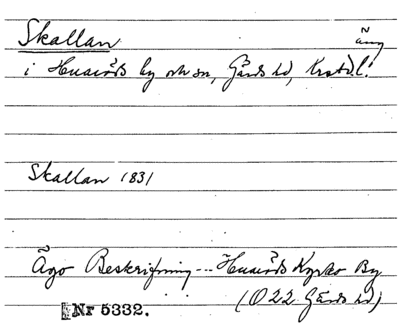 Skallan äng
i Huaröds by och sn, Gärds hd, Krstds l.
Skallan 1831
Ägo Beskrifning --- Huaröds Kyrko By
Nr 5332. (O 22 Gärds hd)